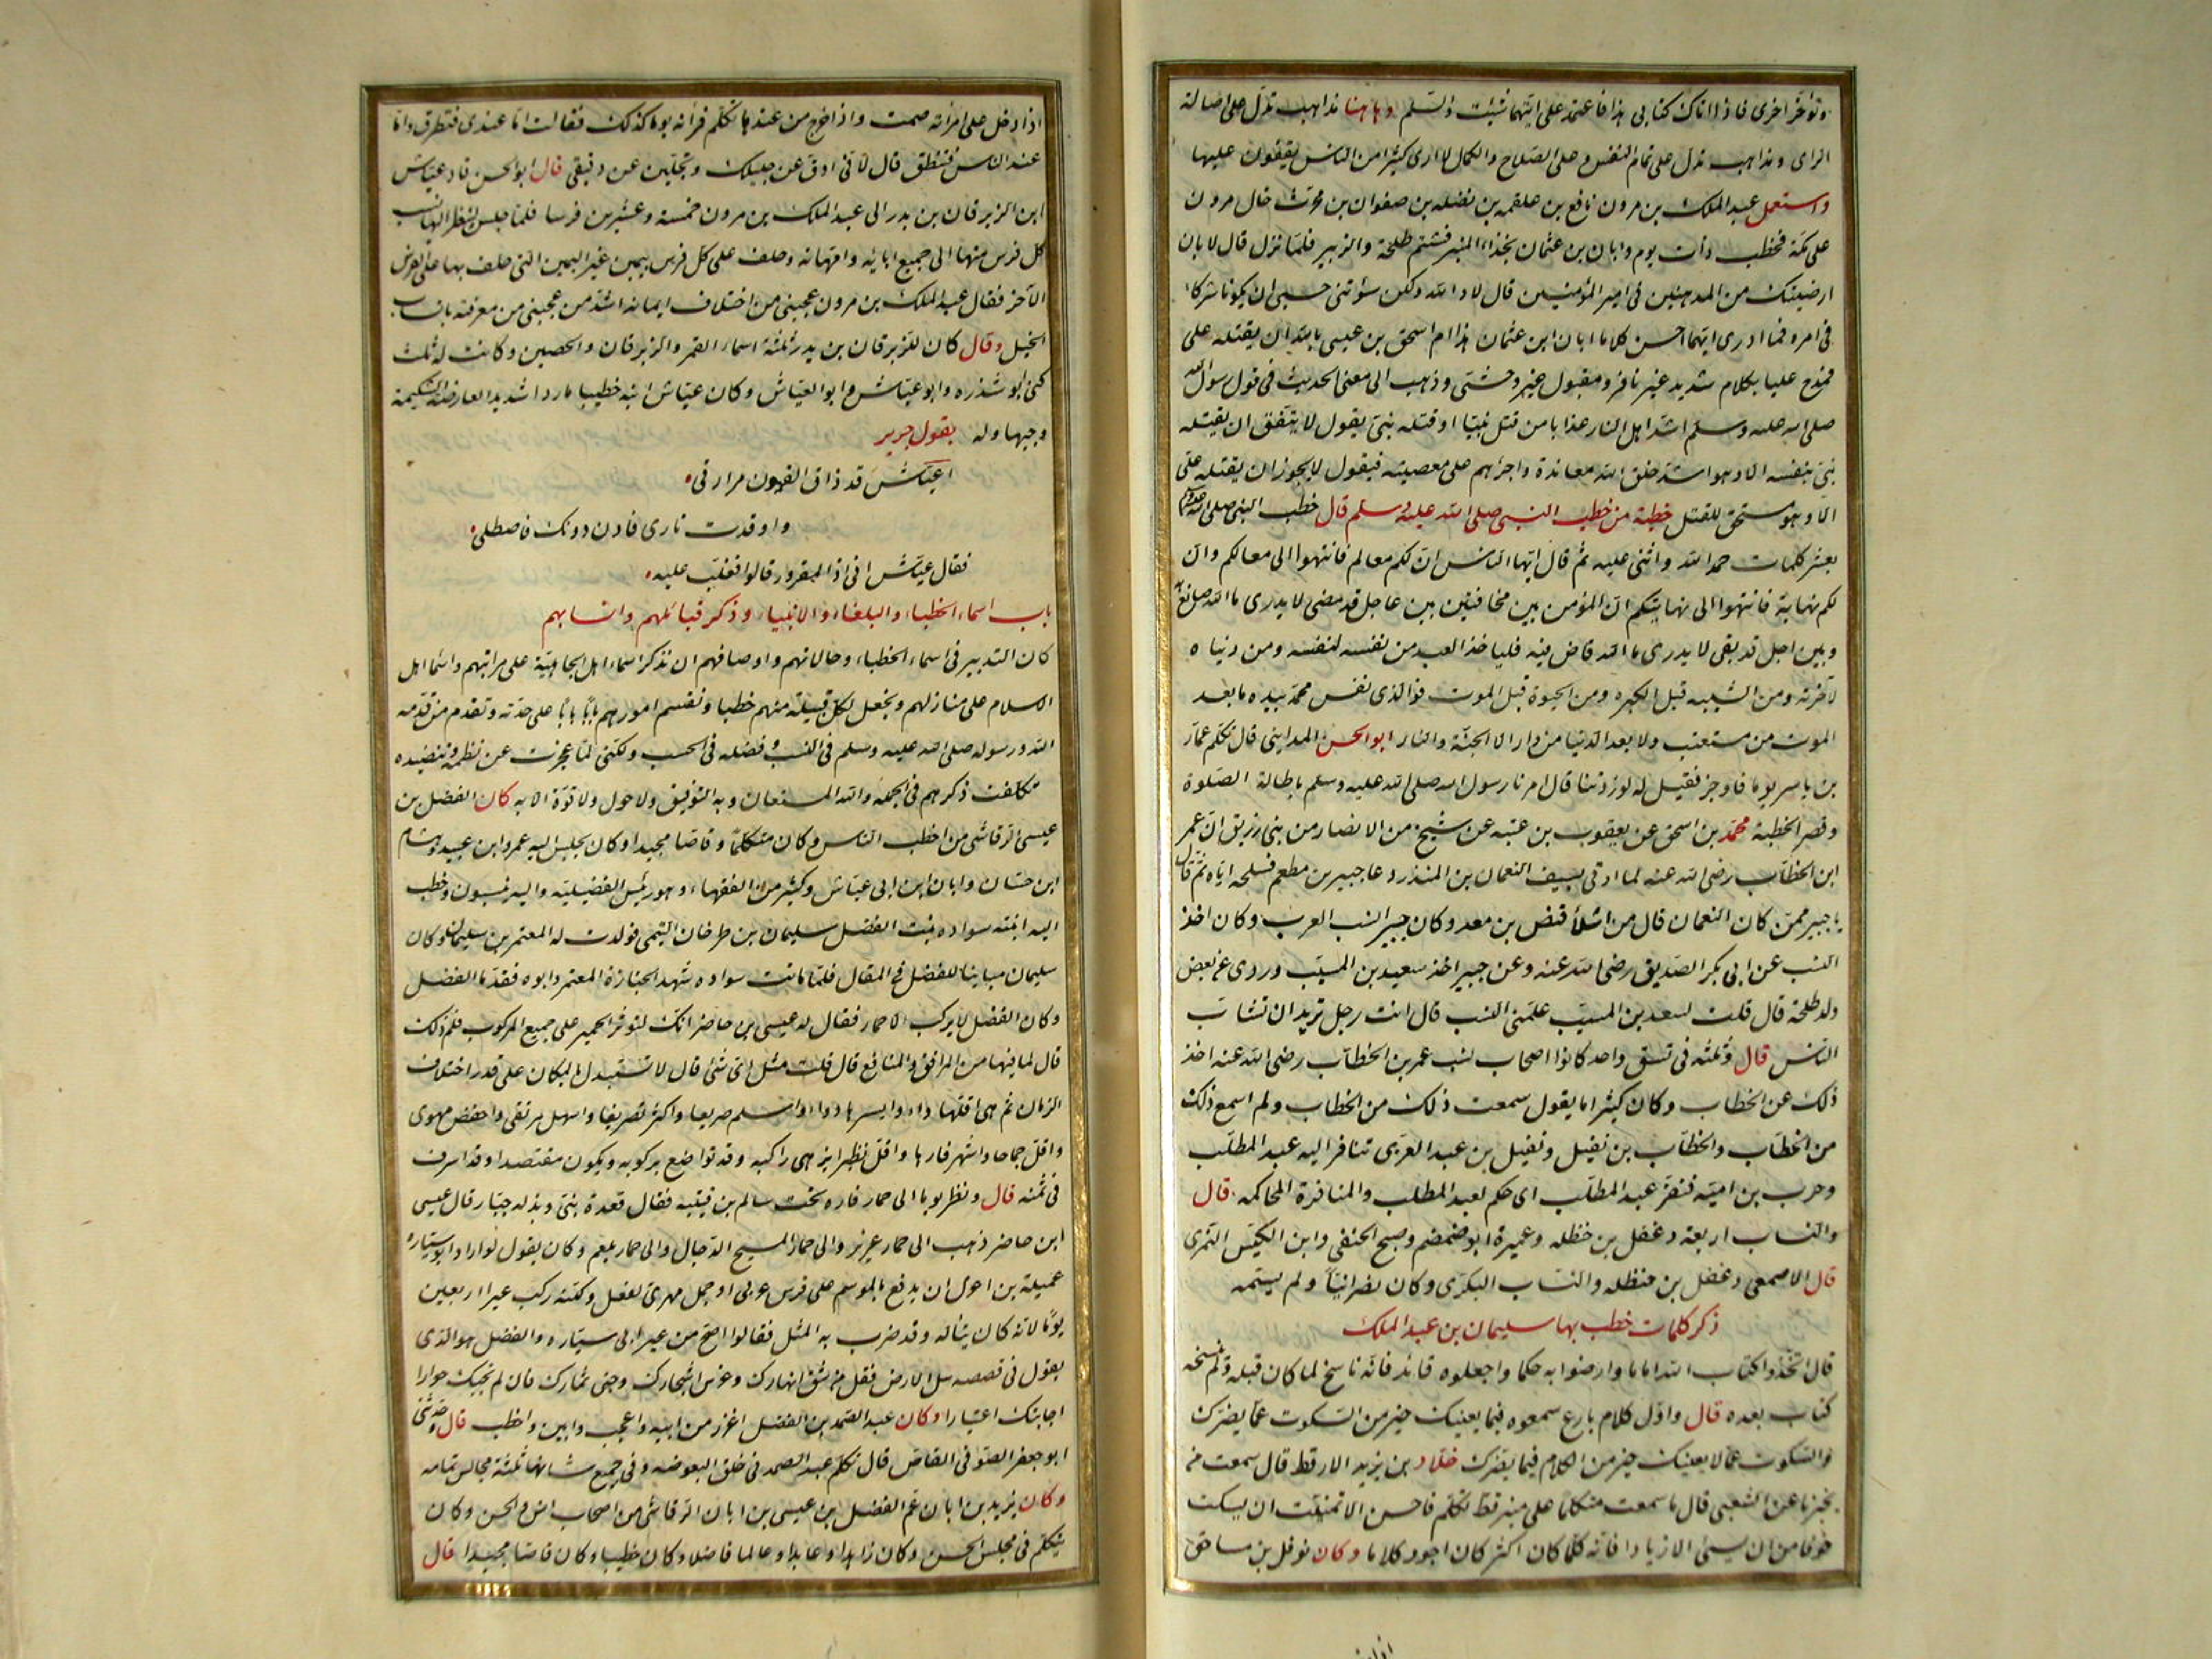 وتؤخر اخرى فاذا اتاك كتابى هذا فاعتمد على ايتهما شئت والسلم وهاهنا مذاهب تدل على اصالة
الراى ومذاهب تدل على تمام النفس وعلى الصلاح والكمال لا ارى كثيرا من الناس يقفون عليها
واستعمل عبد الملك بن مرون نافع بن علقمه بن نضله بن صفوان بن محرث خال مرون
على مكة فخطب ذات يوم وابان بن عثمان بحذاء المنبر فشتم طلحة والزبير فلما نزل قال لابان
ارضيتك من المدهنين فى امير المؤمنين قال لا والله ولكن سؤتنى حسبى ان يكونا شركاء
فى امره فما ادرى ايتهما احسن كلاما ابان ابن عثمان هذا ام اسحق بن عيسى بالله ان يقتله على
فمدح عليا بكلام شديد غير نافر ومقبول غير وحشى وذهب الى معنى الحديث فى قول رسول الله
صلى الله عليه وسلم اشد اهل النار عذابا من قتل نبيا او قتله نبى يقول لا يتفق ان يقتله
نبى بنفسه الا وهو اشد خلق الله معاندة واجرئهم على معصيته فيقول لا يجوز ان يقتله على
الا وهو مستحق للقتل خطبة من خطب النبى صلى الله عليه وسلم قال خطب النبى صلى الله عليه وسلم
بعشر كلمات حمد الله واثنى عليه ثم قال ايها الناس ان لكم معالم فانتهوا الى معالمكم وان
لكم نهاية فانتهوا الى نهايتكم ان المؤمن بين مخافتين بين عاجل قد مضى لا يدرى ما الله صانع به
وبين اجل قد بقى لا يدرى ما الله قاض فيه فلياخذ العبد من نفسه لنفسه ومن دنياه
لآخرته ومن الشبيبه قبل الكبره ومن الحيوة قبل الموت فوالذى نفس محمد بيده ما بعد
الموت من مستعتب ولا بعد الدنيا من دار الا الجنة والنار ابو الحسن المداينى قال تكلم عمار
بن ياسر يوما فاوجز فقيل له لو زدتنا قال امرنا رسول الله صلى الله عليه وسلم باطالة الصلوة
وقصر الخطبة محمد بن اسحق عن يعقوب بن عتبه عن شيخ من الانصار من بنى زريق ان عمر
ابن الخطاب رضى الله عنه لما اتى بسيف النعمان بن المنذر دعا جبير بن مطعم فسلحه اياه ثم قال
يا جبير ممن كان النعمان قال من اشلاء قنص بن معد وكان جبير انسب العرب وكان اخذ
النسب عن ابى بكر الصديق رضى الله عنه وعن جبير اخذ سعيد بن المسيب وروى عن بعض
ولد طلحة قال قلت لسعيد بن المسيب علمنى النسب قال انت رجل تريد ان تساب
الناس قال وثلثه فى نسق واحد كانوا اصحاب نسب عمر بن الخطاب رضى الله عنه اخذ
ذلك عن الخطاب وكان كثيرا ما يقول سمعت ذلك من الخطاب ولم اسمع ذلك
من الخطاب والخطاب بن نفيل ونفيل بن عبد العزى تنافر اليه عبد المطلب
وحرب بن اميه فنفر عبد المطلب اى حكم لعبد المطلب والمنافرة المحاكمه قال
والنساب اربعة دغفل بن حنظله وعميرة ابو ضمضم وصبح الحنفى وابن الكيس النمرى
قال الاصمعى دغفل بن حنظله والنساب البكرى وكان نصرانيا ولم يسمه
ذكر كلمات خطب بها سليمان بن عبد الملك
قال اتخذوا كتاب الله اماما وارضوا به حكما واجعلوه قائدا فانه ناسخ لما كان قبله ولم ينسخه
كتاب بعده قال واول كلام بارع سمعوه فيما يعنيك خير من السكوت عما يضرك
والسكوت عما لا يعنيك خير من الكلام فيما يضرك خلاد بن يزيد الارقط قال سمعت من
يخبرنا عن الشعبى قال ما سمعت متكلما على منبر قط تكلم فاحسن الا تمنيت ان يسكت
خوفا من ان يسئ الا زيادا فانه كلما كان اكثر كان اجود كلاما وكان نوفل بن مساحق
اذا دخل على امرأته صمت واذا خرج من عندها تكلم فرأته يوما كذلك فقالت اما عندى فتطرق واما
عند الناس فتنطق قال لانى ادق عن جليلك وتجلين عن دقيقى قال ابو الحسن قاد عياش
ابن الزبرقان بن بدر الى عبد الملك بن مرون خمسة وعشرين فرسا فلما جلس لينظر اليها نسب
كل فرس منها الى جميع ابائه وامهاته وحلف على كل فرس بيمين غير اليمين التى حلف بها على الفرس
الآخر فقال عبد الملك بن مرون عجبى من اختلاف ايمانه اشد من عجبى من معرفته بانساب
الخيل وقال كان للزبرقان بن بدر ثلثة اسماء القمر والزبرقان والحصين وكانت له ثلث
كنى ابو شذره وابو عياش وابو العياش وكان عياش ابنه خطيبا ماردا شديد العارضة شديد الشكيمة
وجيها وله يقول جرير
اعياش قد ذاق القيون مرارتى
واوقدت نارى فادن دونك فاصطلى
فقال عياش انى اذا لمقرور قالوا فغلب عليه
باب اسماء الخطباء والبلغاء والانبياء وذكر قبائلهم وانسابهم
كان التدبير فى اسماء الخطباء وحالاتهم واوصافهم ان نذكر اسماء اهل الجاهلية على مراتبهم واسماء اهل
الاسلام على منازلهم ونجعل لكل قبيلة منهم خطبا ونقسم امورهم بابا بابا على حدته ونقدم من قدمه
الله ورسوله صلى الله عليه وسلم فى النسب وفضله فى الحسب ولكنى لما عجزت عن نظمه وتنضيده
تكلفت ذكرهم فى الجمله والله المستعان وبه التوفيق ولا حول ولا قوة الا به كان الفضل بن
عيسى الرقاشى من اخطب الناس وكان متكلما وقاصا مجيدا وكان يجلس اليه عمرو ابن عبيد وهشام
ابن حسان وابان ابن ابى عياش وكثير من الفقهاء وهو رئيس الفضيلية واليه ينسبون وخطب
اليه ابنته سواده بنت الفضل سليمان بن طرخان التيمى فولدت له المعتمر بن سليمان وكان
سليمان مباينا للفضل فى المقال فلما ماتت سواده شهد الجنازة المعتمر وابوه فقدما الفضل
وكان الفضل لا يركب الا حمار فقال له عيسى بن حاضر انك لتؤثر الحمير على جميع المركوب فلم ذلك
قال لما فيها من المرافق والمنافع قال قلت مثل اى شئ قال لا تستبدل بالمكان على قدر اختلاف
الزمان ثم هى اقلها داء وايسرها دواء واسلم صريعا واكثر تصريفا واسهل مرتقى واخفض مهوى
واقل جماحا واشهر فارها واقل نظيرا يزهى راكبه وقد تواضع بركوبه ويكون مقتصدا وقد اسرف
فى ثمنه قال ونظر يوما الى حمار فاره تحت سالم بن قتيبه فقال قعدة نبى وبذلة جبار قال عيسى
ابن حاضر ذهب الى حمار عزير والى حمار المسيح الدجال والى حمار بلعم وكان يقول لو اراد ابو سياره
عميلة بن اعزل ان يدفع بالموسم على فرس عربى او جمل مهرى لفعل ولكنه ركب عيرا اربعين
يوما لانه كان يتأله وقد ضرب به المثل فقالوا اصح من عير ابى سياره والفضل هو الذى
يقول فى قصصه سل الارض فقل من شق انهارك وغرس اشجارك وجنى ثمارك فان لم تجبك حوارا
اجابتك اعتبارا وكان عبد الصمد بن الفضل اغزر من ابيه واعجب وابين واخطب قال وحدثنى
ابو جعفر الصوفى القاص قال تكلم عبد الصمد فى خلق البعوضه وفى جميع شانها ثلثة مجالس تمامه
وكان يزيد بن ابان عم الفضل ابن عيسى بن ابان الرقاشى من اصحاب انس والحسن وكان
يتكلم فى مجلس الحسن وكان زاهدا وعابدا وعالما فاضلا وكان خطيبا وكان قاصا مجيدا قال